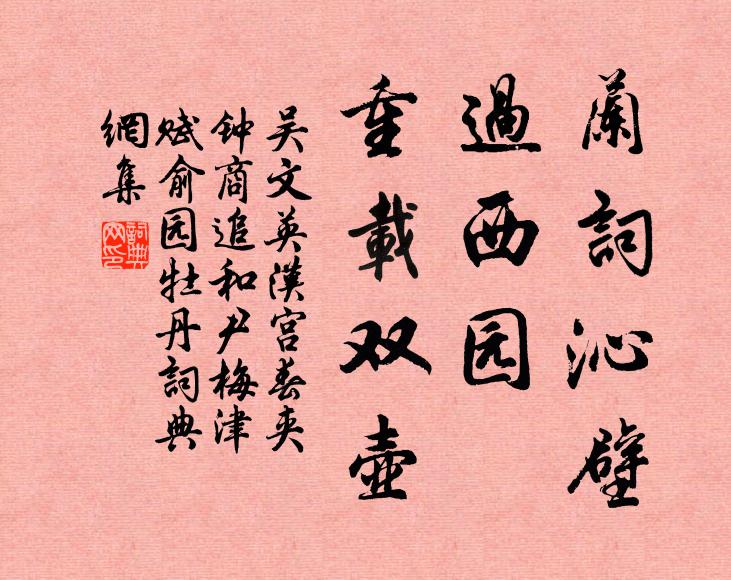 蘭詞沁壁
過西园
重載双壺
吴文英漢宫春夹
钟商追和尹梅津
赋俞园牡丹詞典
網集
詞典网印